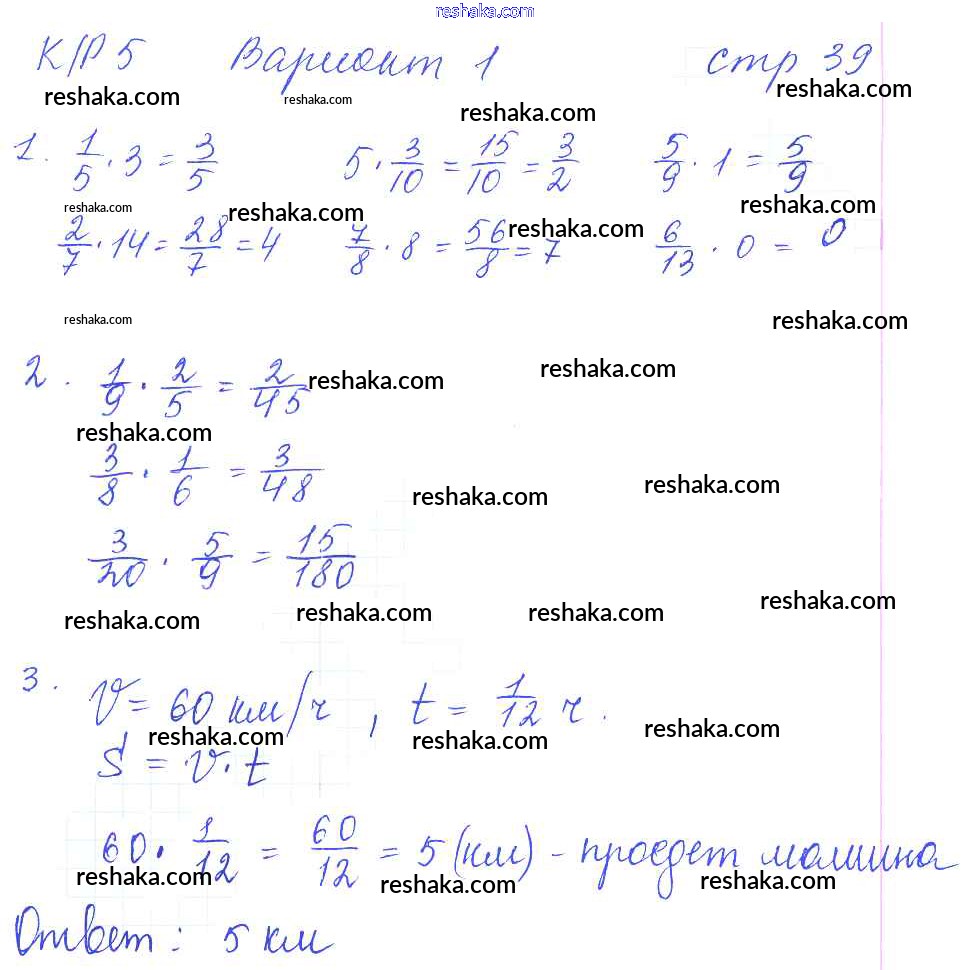 reshaka.com
К/Р 5 Вариант 1 стр 39
reshaka.com reshaka.com reshaka.com reshaka.com
1. 1/5 · 3 = 3/5 5 · 3/10 = 15/10 = 3/2 5/9 · 1 = 5/9
reshaka.com reshaka.com reshaka.com reshaka.com
2/7 · 14 = 28/7 = 4 7/8 · 8 = 56/8 = 7 6/13 · 0 = 0
reshaka.com reshaka.com
2. 1/9 · 2/5 = 2/45 reshaka.com reshaka.com
reshaka.com
3/8 · 1/6 = 3/48
reshaka.com reshaka.com
3/20 · 5/9 = 15/180
reshaka.com reshaka.com reshaka.com reshaka.com
3. V = 60 км/ч, t = 1/12 ч.
reshaka.com reshaka.com reshaka.com
S = v · t
60 · 1/12 = 60/12 = 5 (км) - проедет машина
reshaka.com reshaka.com reshaka.com
Ответ: 5 км